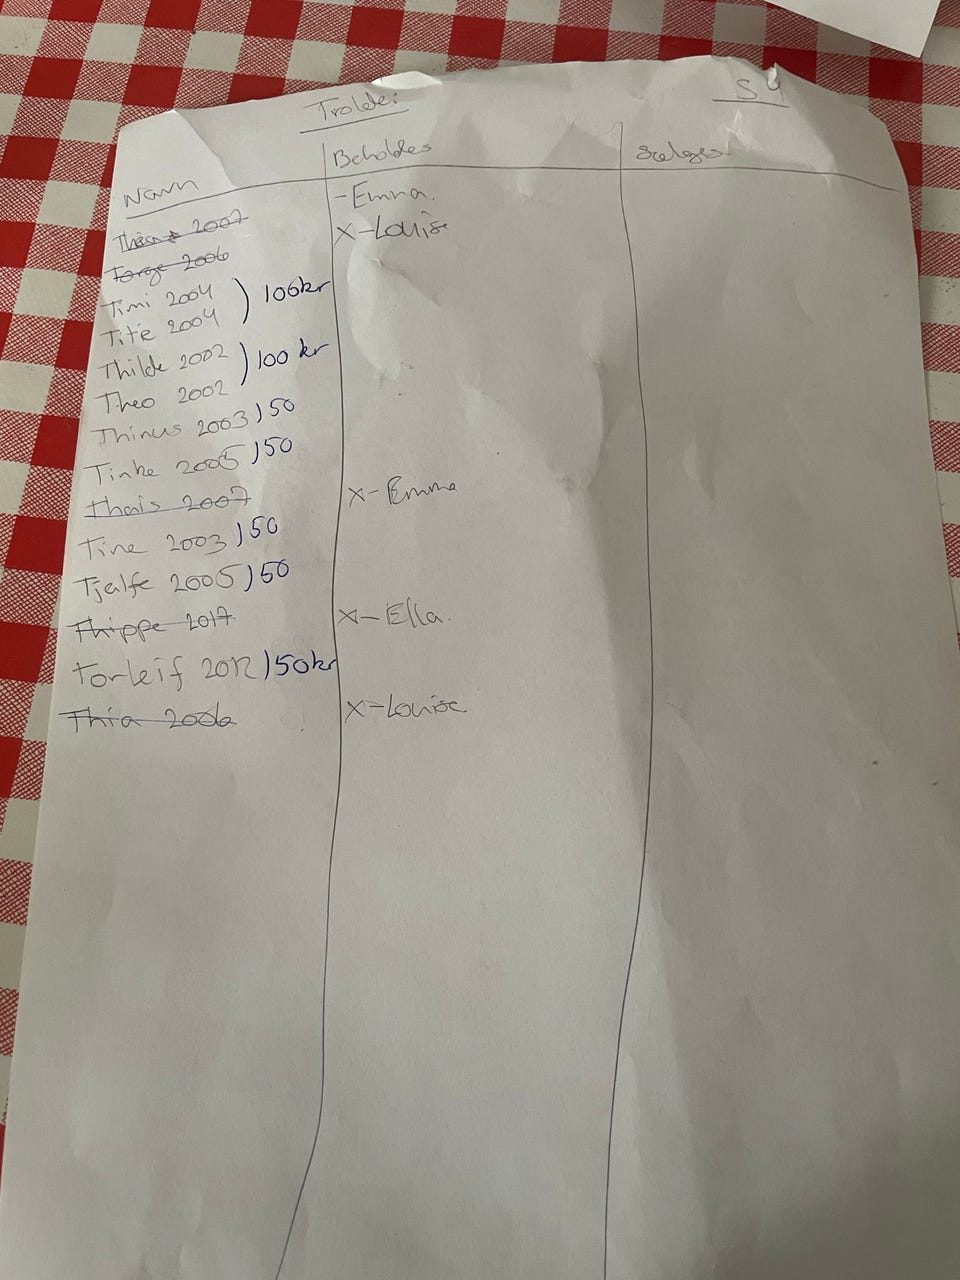 Trolde: S 4
Navn Beholdes Sælges
2007 -Emma.
Torge 2006 X-Louise
Timi 2004 ) 100kr
Tite 2004
Thilde 2002 ) 100 kr
Theo 2002
Thinus 2003 ) 50
Tinke 2005 ) 50
thais 2007 X-Emma
Tine 2003 ) 50
Tjalfe 2005 ) 50
Thippe 2017 X-Ella.
Torleif 2012 ) 50kr
Thia 2006 X-Louise